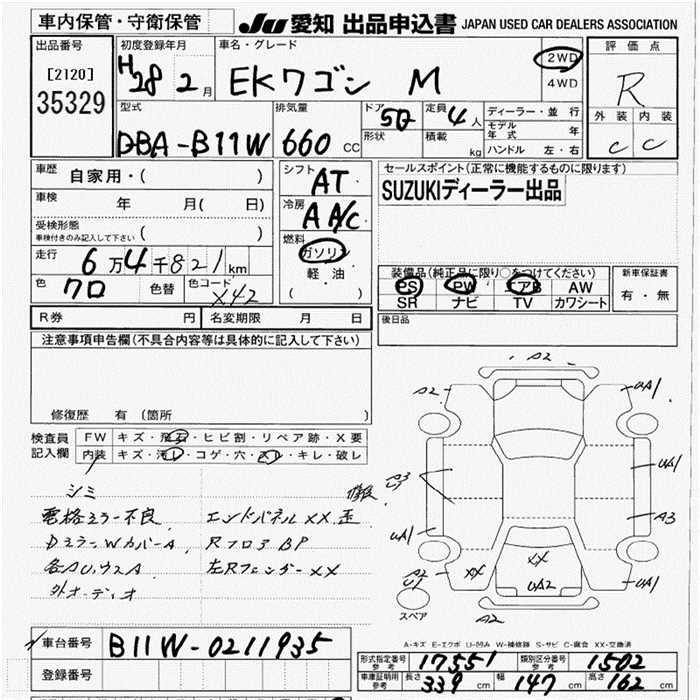 車内保管・守衛保管
JU 愛知 出品申込書 JAPAN USED CAR DEALERS ASSOCIATION
出品番号
[2120]
35329
初度登録年月
H28 2月
車名・グレード
EKワゴン M
2WD
4WD
評価点
R
外装 内装
C C
型式
DBA-B11W
排気量
660 CC
ドア
5D
形状
定員
4人
積載
kg
ディーラー・並行
モデル年式 年
ハンドル 左・右
車歴
自家用・( )
車検
年 月( 日)
受検形態
車検付きのみ記入して下さい ( )
走行
6万4千821km
色
クロ
色替
色コード
X42
シフト
AT
冷房
A A/C
燃料
ガソリン
軽油
( )
セールスポイント(正常に機能するものに限ります)
SUZUKIディーラー出品
装備品(純正品に限り○をつけてください)
PS PW エアB AW
SR ナビ TV カワシート
新車保証書
有・無
後日品
R券 円 名変期限 月 日
注意事項申告欄(不具合内容等は具体的に記入して下さい)
修復歴 有 (箇所 )
検査員
記入欄
FW キズ・飛石・ヒビ割・リペア跡・X要
内装 キズ・汚レ・コゲ・穴・スレ・キレ・破レ
シミ
電格ミラー不良
DミラーWカバーA
各AUウスA
外オーディオ
修復
エンドパネルXX歪
RフロアBP
左RフェンダーXX
A2
A2
UA1
UA1
UA1
A3
UA1
A2
U1
XX
XX
UA2
UA1
A2
スペア
A-キズ E-エクボ U-凹み W-補修跡 S-サビ C-腐食 XX-交換済
車台番号 B11W-0211935
登録番号
形式指定番号 参考 17551 類別区分番号 参考 1502
車庫証明用 参考 長さ 339 cm 幅 147 cm 高さ 162 cm